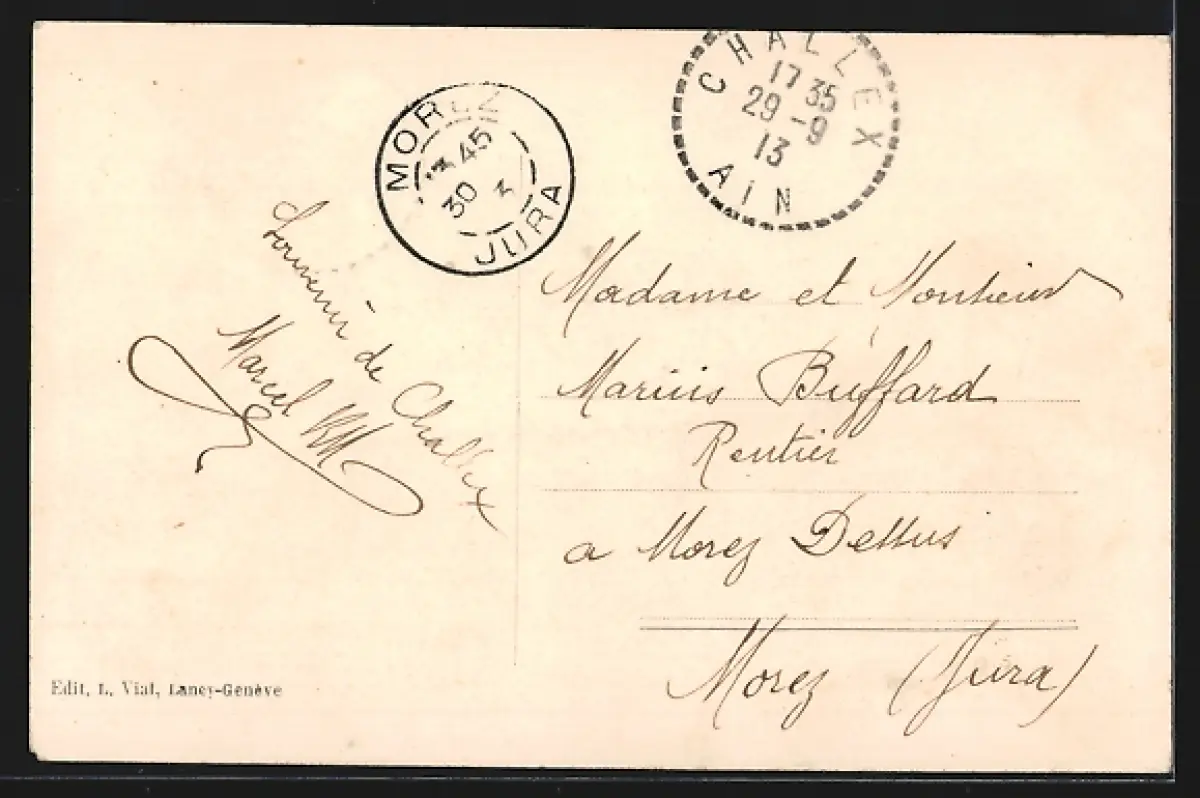 CHALLEX
17 35
29 -9
13
AIN
MOREZ
45
30
JURA
Souvenir de Challex
Marcel
Madame et Monsieur
Marius Buffard
Rentier
a Morez Dessus
Morez (Jura)
Edit. L. Vial, Lancy-Genève